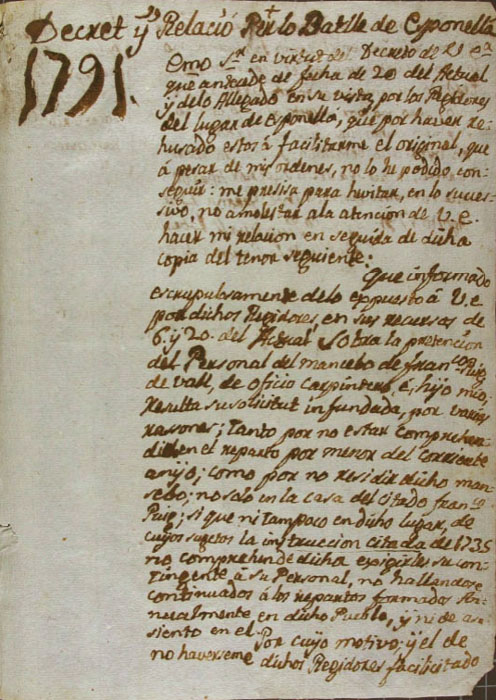 Decret y Relació Per lo Batlle de Esponella
1791.
Emo Sr. en virtut del Decreto de V. E.
que antecede de fecha de 20 del Actual
y de lo Allegado en su vista, por los Regidores
del lugar de Esponella, que por haver re-
husado estos á facilitarme el original, que
á pesar de mis ordenes, no lo he podido con-
seguir: me presisa para hvitar, en lo suces-
sivo, no amolestar a la atencion de V. E.
hacer mi relacion en seguida de dicha
copia del tenor seguiente:
Que informado
escrupulosamente de lo expuesto á V. E
por dichos Regidores, en sus recursos de
6. y 20. del Actual Sobra la pretencion
del Personal del mancebo de Franco Puig
de vall, de oficio Carpintero, é, hijo mio,
Resulta su solicitut infundada, por varias
rasones; Tanto por no estar Comprehen-
dido en el reparto por menor del Corriente
anijo; como por no residir dicho man-
sebo; no solo en la casa del citado franco
Puig; si que ni tampoco en dicho lugar, de
cuyos sugetos la instruccion citada de 1735
no comprehende dicha exigirles su con-
tingente á su Personal, no hallandose
continuados á los repartos formados An-
nualmente en dicho Pueblo, y ni de asi-
siento en el. Por cuyo motivo; y el de
no haverseme dichos Regidores facilitado